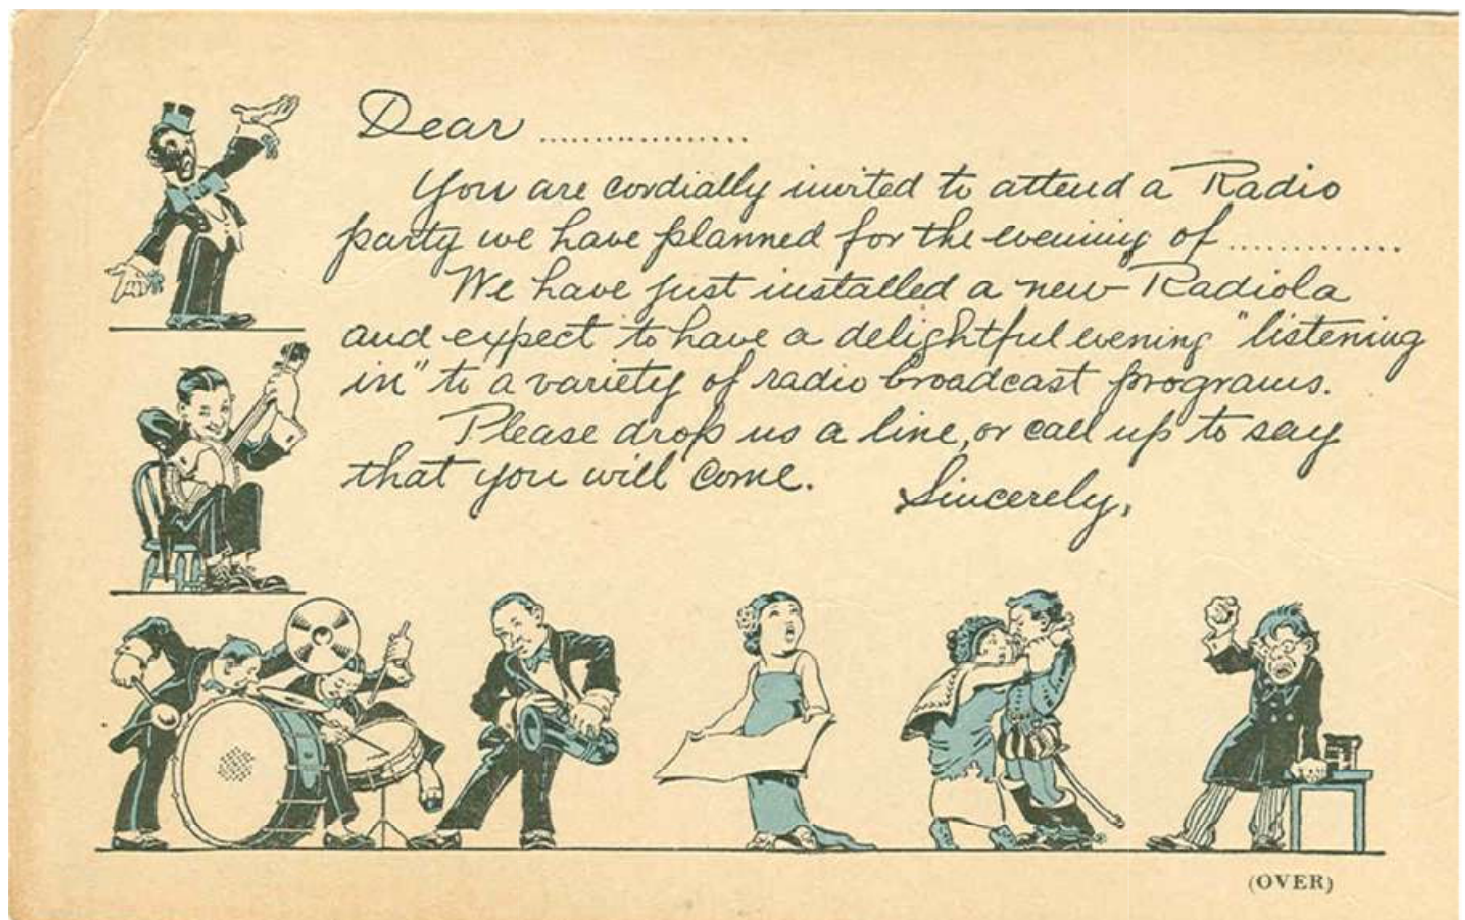 Dear .................
You are cordially invited to attend a Radio
party we have planned for the evening of .............
We have just installed a new Radiola
and expect to have a delightful evening "listening
in" to a variety of radio broadcast programs.
Please drop us a line, or call up to say
that you will come. Sincerely,
(OVER)